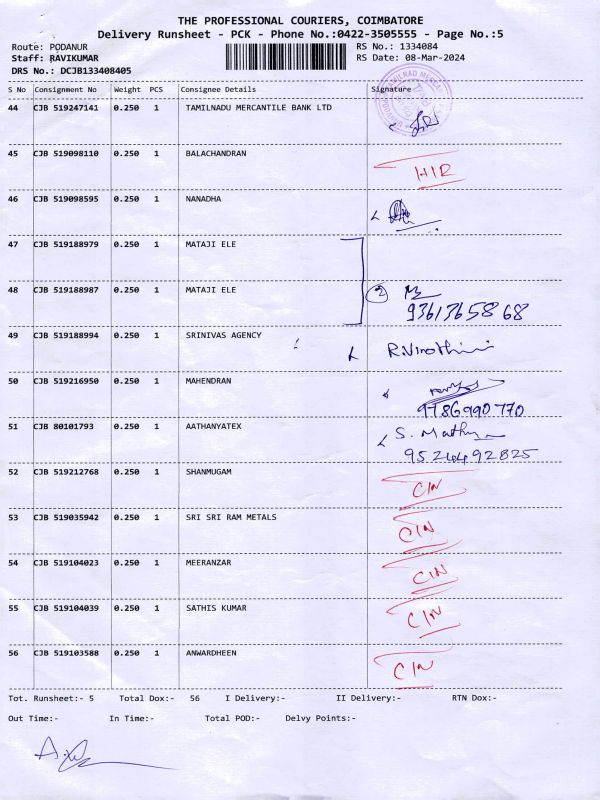 THE PROFESSIONAL COURIERS, COIMBATORE
Delivery Runsheet - PCK - Phone No.:0422-3505555 - Page No.:5
Route: PODANUR RS No.: 1334084
Staff: RAVIKUMAR RS Date: 08-Mar-2024
DRS No.: DCJB133408405
S No Consignment No Weight PCS Consignee Details Signature
44 CJB 519247141 0.250 1 TAMILNADU MERCANTILE BANK LTD
45 CJB 519098110 0.250 1 BALACHANDRAN HIR
46 CJB 519098595 0.250 1 NANADHA
47 CJB 519188979 0.250 1 MATAJI ELE
48 CJB 519188987 0.250 1 MATAJI ELE 2
9361365868
49 CJB 519188994 0.250 1 SRINIVAS AGENCY R.Vinothini
50 CJB 519216950 0.250 1 MAHENDRAN
9786990770
51 CJB 80101793 0.250 1 AATHANYATEX S. Mathu
9524492825
52 CJB 519212768 0.250 1 SHANMUGAM CIN
53 CJB 519035942 0.250 1 SRI SRI RAM METALS CIN
54 CJB 519104023 0.250 1 MEERANZAR CIN
55 CJB 519104039 0.250 1 SATHIS KUMAR CIN
56 CJB 519103588 0.250 1 ANWARDHEEN CIN
Tot. Runsheet:- 5 Total Dox:- 56 I Delivery:- II Delivery:- RTN Dox:-
Out Time:- In Time:- Total POD:- Delvy Points:-